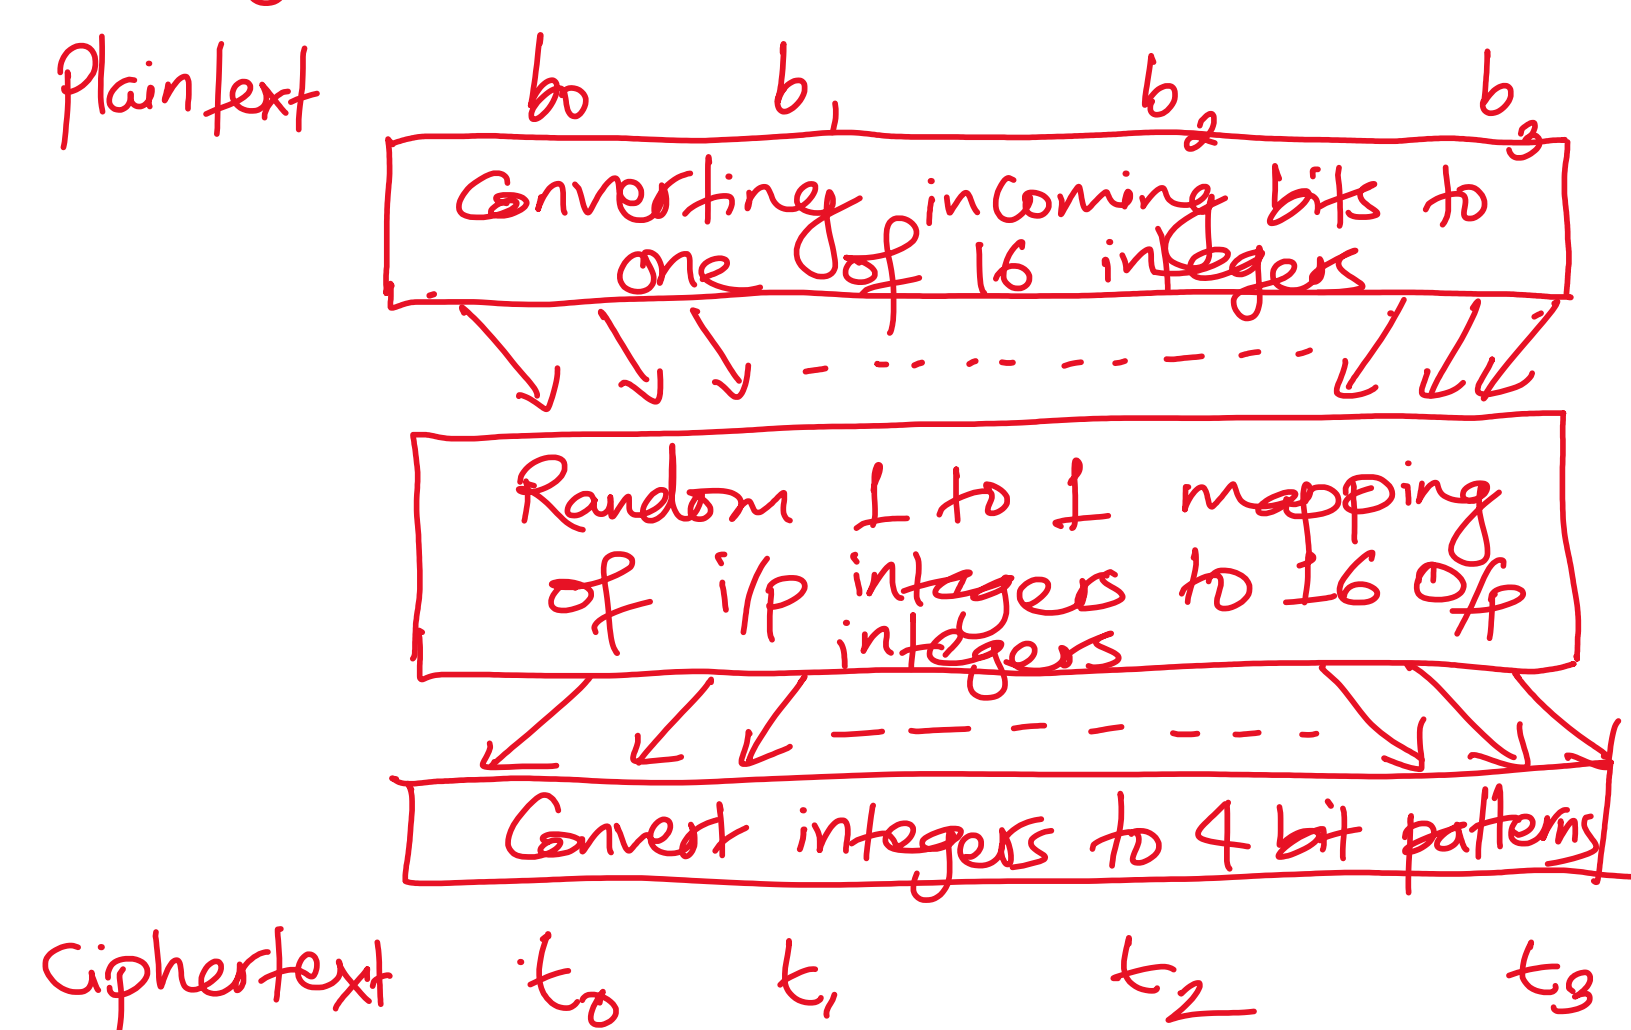 Plaintext b0 b1 b2 b3
Converting incoming bits to
one of 16 integers
Random 1 to 1 mapping
of i/p integers to 16 o/p
integers
Convert integers to 4 bit patterns
Ciphertext t0 t1 t2 t3